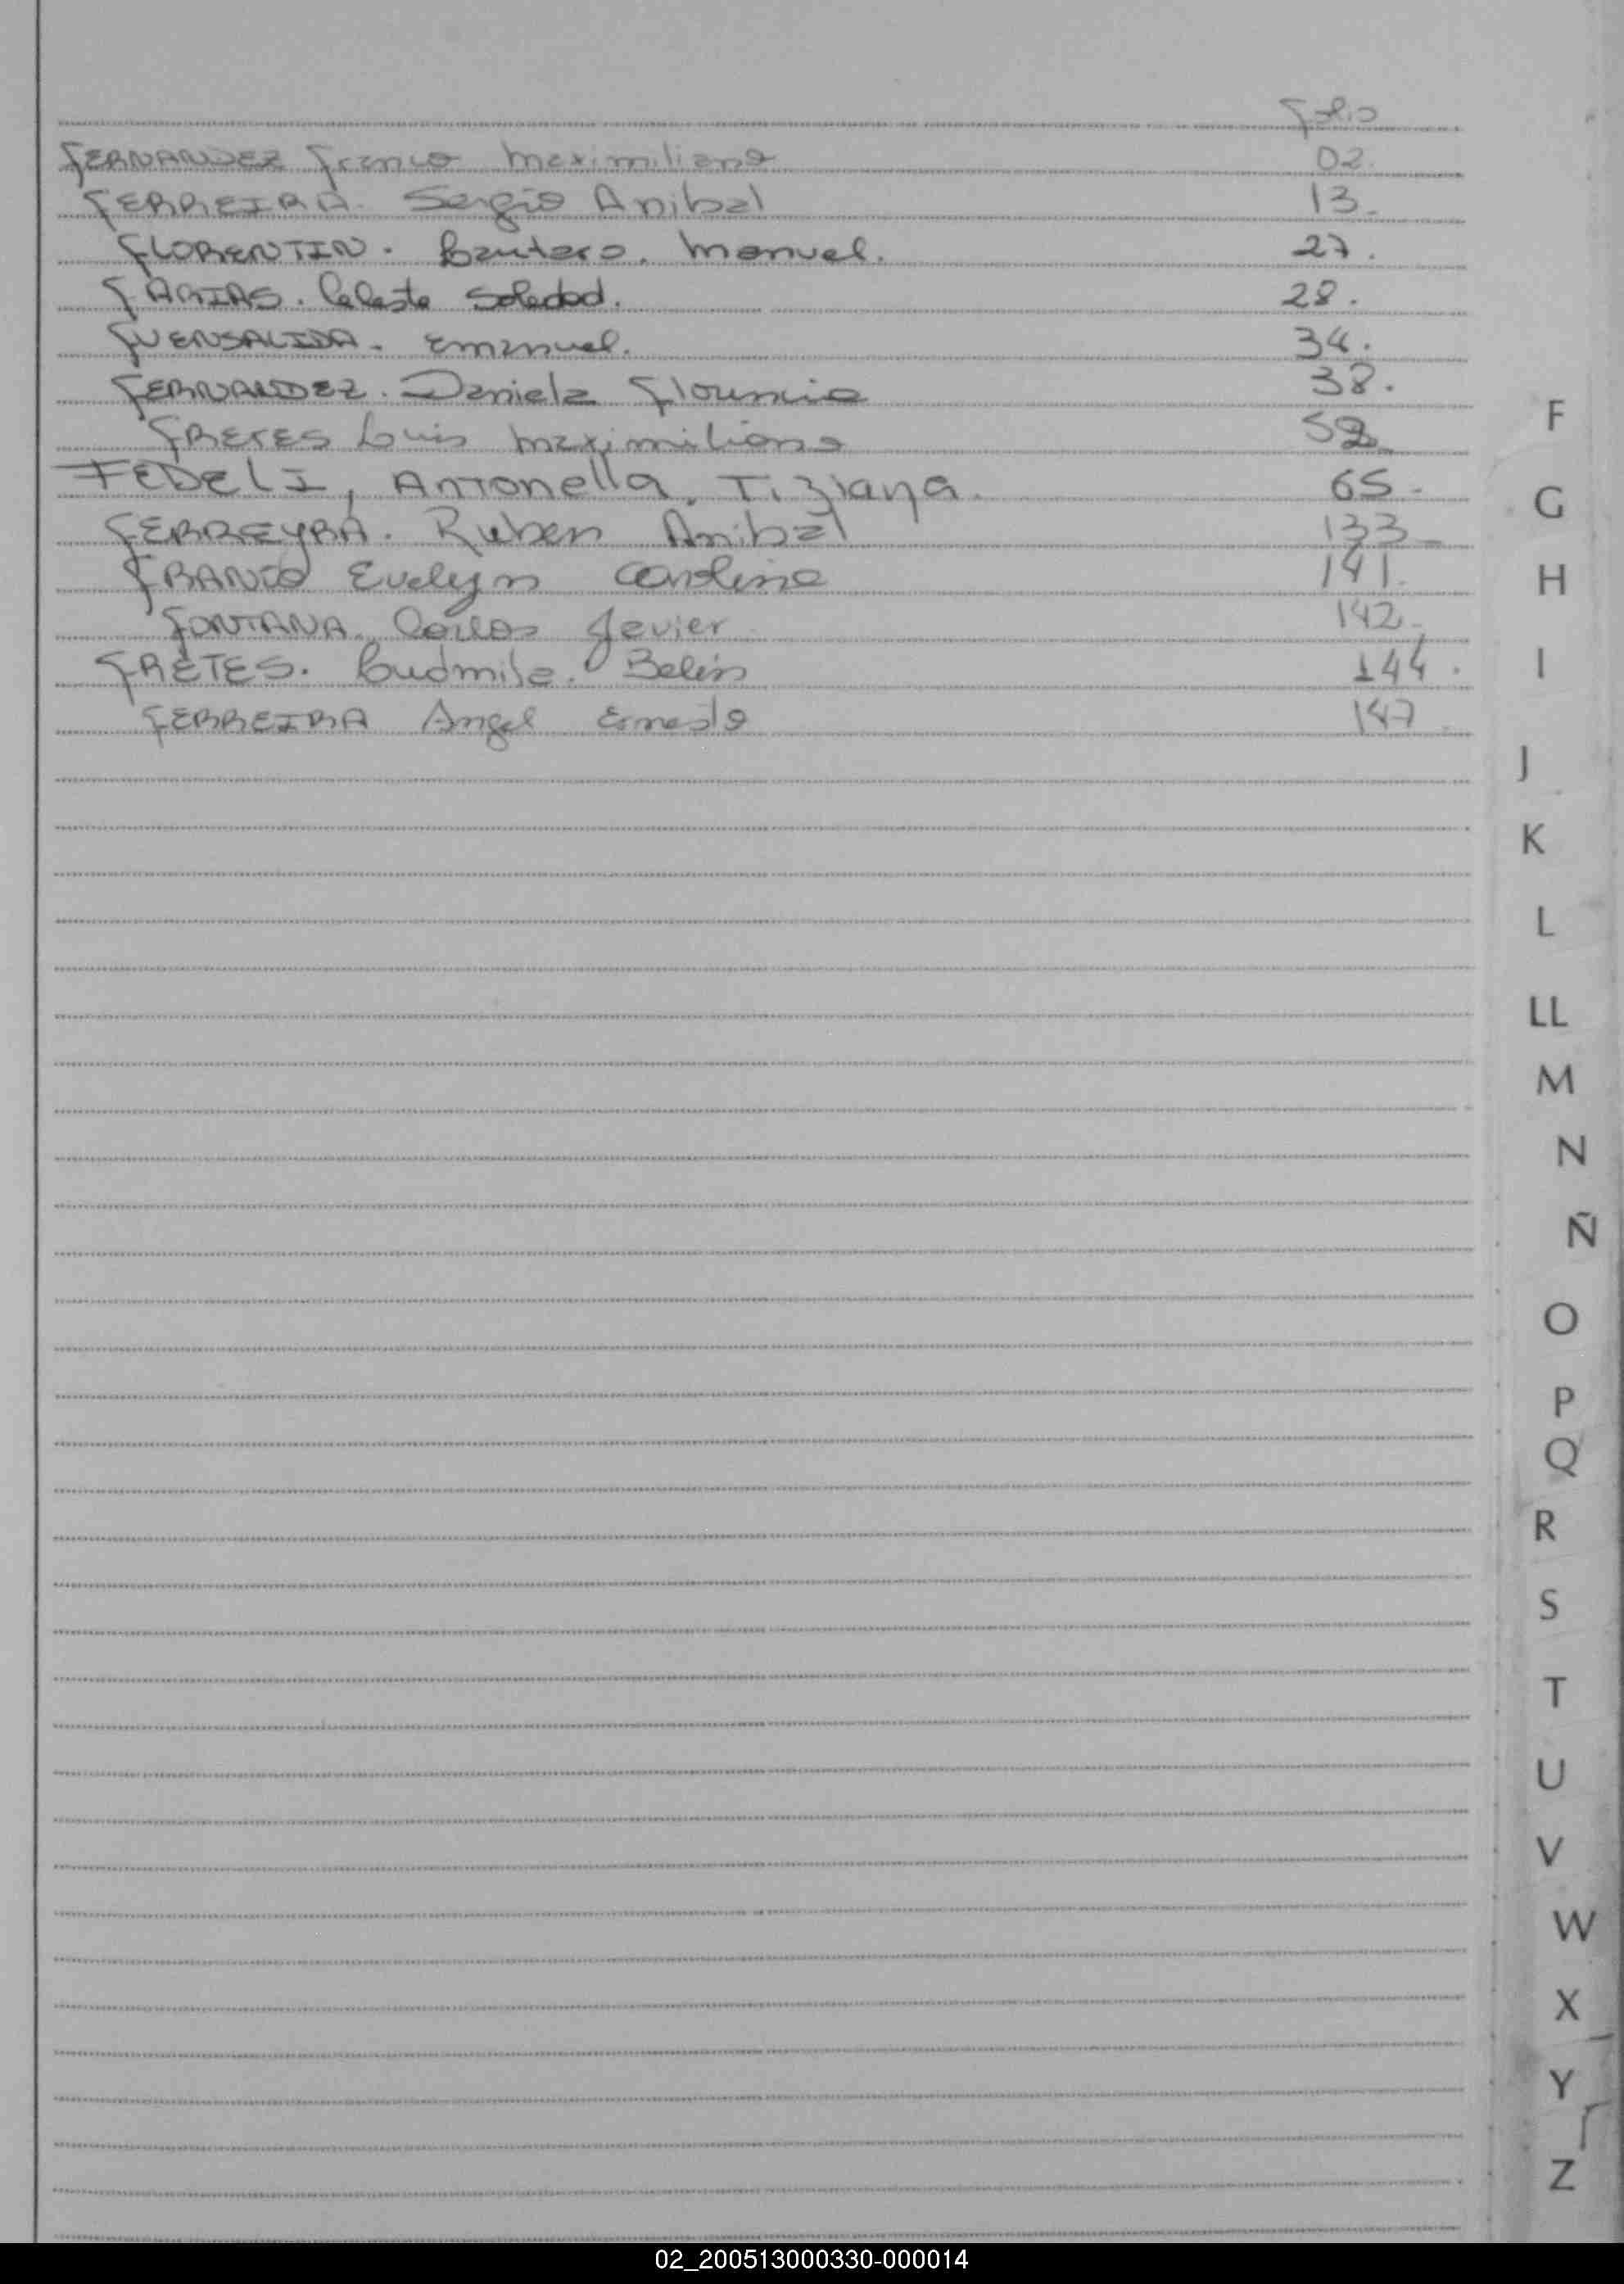 Folio
FERNANDEZ Franco Maximiliano 02.
FERREIRA. Sergio Anibal 13.
FLORENTIN. Lautaro. Manuel. 27.
FARIAS. Celeste Soledad. 28.
FUENSALIDA. Emanuel. 34.
FERNANDEZ. Daniela Florencia 38.
FRETES Luis Maximiliano 52.
FEDELI, Antonella. Tiziana. 65.
FERREYRA. Ruben Anibal 133
FRANCO Evelyn Carolina 141.
FONTANA. Carlos Javier 142.
FRETES. Ludmila. Belén 144.
FERREIRA Angel Ernesto 147.
F
G
H
I
J
K
L
LL
M
N
Ñ
O
P
Q
R
S
T
U
V
W
X
Y
Z
02_200513000330-000014